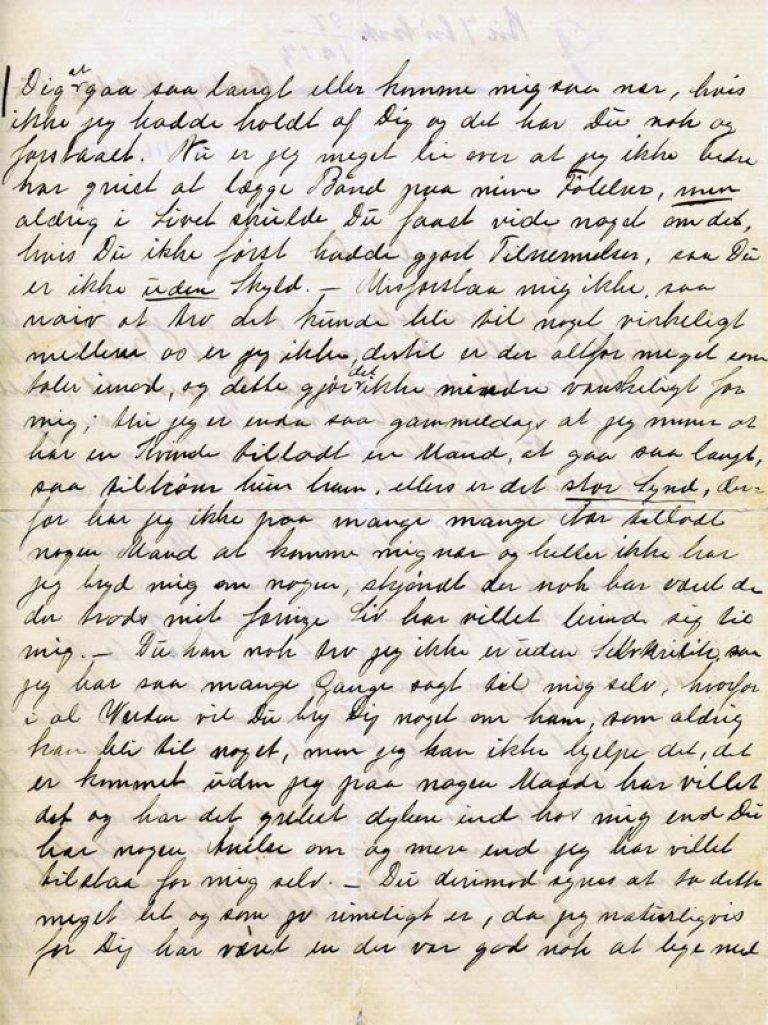 Dig at gaa saa langt eller komme mig saa nær, hvis
ikke jeg hadde holdt af Dig og det har Du nok og
forstaaet. Nu er jeg meget lei over at jeg ikke bedre
har greiet at lægge Baand paa mine Følelser, men
aldrig i Livet skulde Du faaet vide noget om det,
hvis Du ikke først hadde gjort Tilnermelser, saa Du
er ikke uden Skyld. — Misforstaa mig ikke, saa
naiv at tro det kunde bli til noget virkeligt
mellem os er jeg ikke, dertil er der altfor meget som
taler imod, og dette gjør det ikke mindre vanskeligt for
mig; thi jeg er enda saa gammeldags at jeg mener at
har en Kvinde tilladt en Mand, at gaa saa langt,
saa tilhører hun ham, ellers er det stor Synd, der=
for har jeg ikke paa mange mange Aar tilladt
nogen Mand at komme mig nær og heller ikke har
jeg bryd mig om nogen, skjøndt der nok har været de
der trods mit Liv har villet binde sig til
mig. — Du kan nok tro jeg ikke er uden Selvkritik, saa
jeg har saa mange Gange sagt til mig selv, hvorfor
i al Verden vil Du bry Dig noget om ham, som aldrig
kan bli til noget, men jeg kan ikke hjelpe det, det
er kommet uden jeg paa nogen Maade har villet
det og har det grebet dybere ind hos mig end Du
har nogen Anelse om og mere end jeg har villet
tilstaa for mig selv. — Du derimod synes at ta dette
meget let og som jo rimeligt er, da jeg naturligvis
for Dig har været en der var god nok at lege med